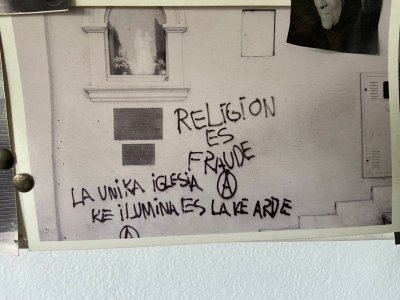 RELIGION
ES
FRAUDE
LA UNIKA IGLESIA
KE ILUMINA ES LA KE ARDE